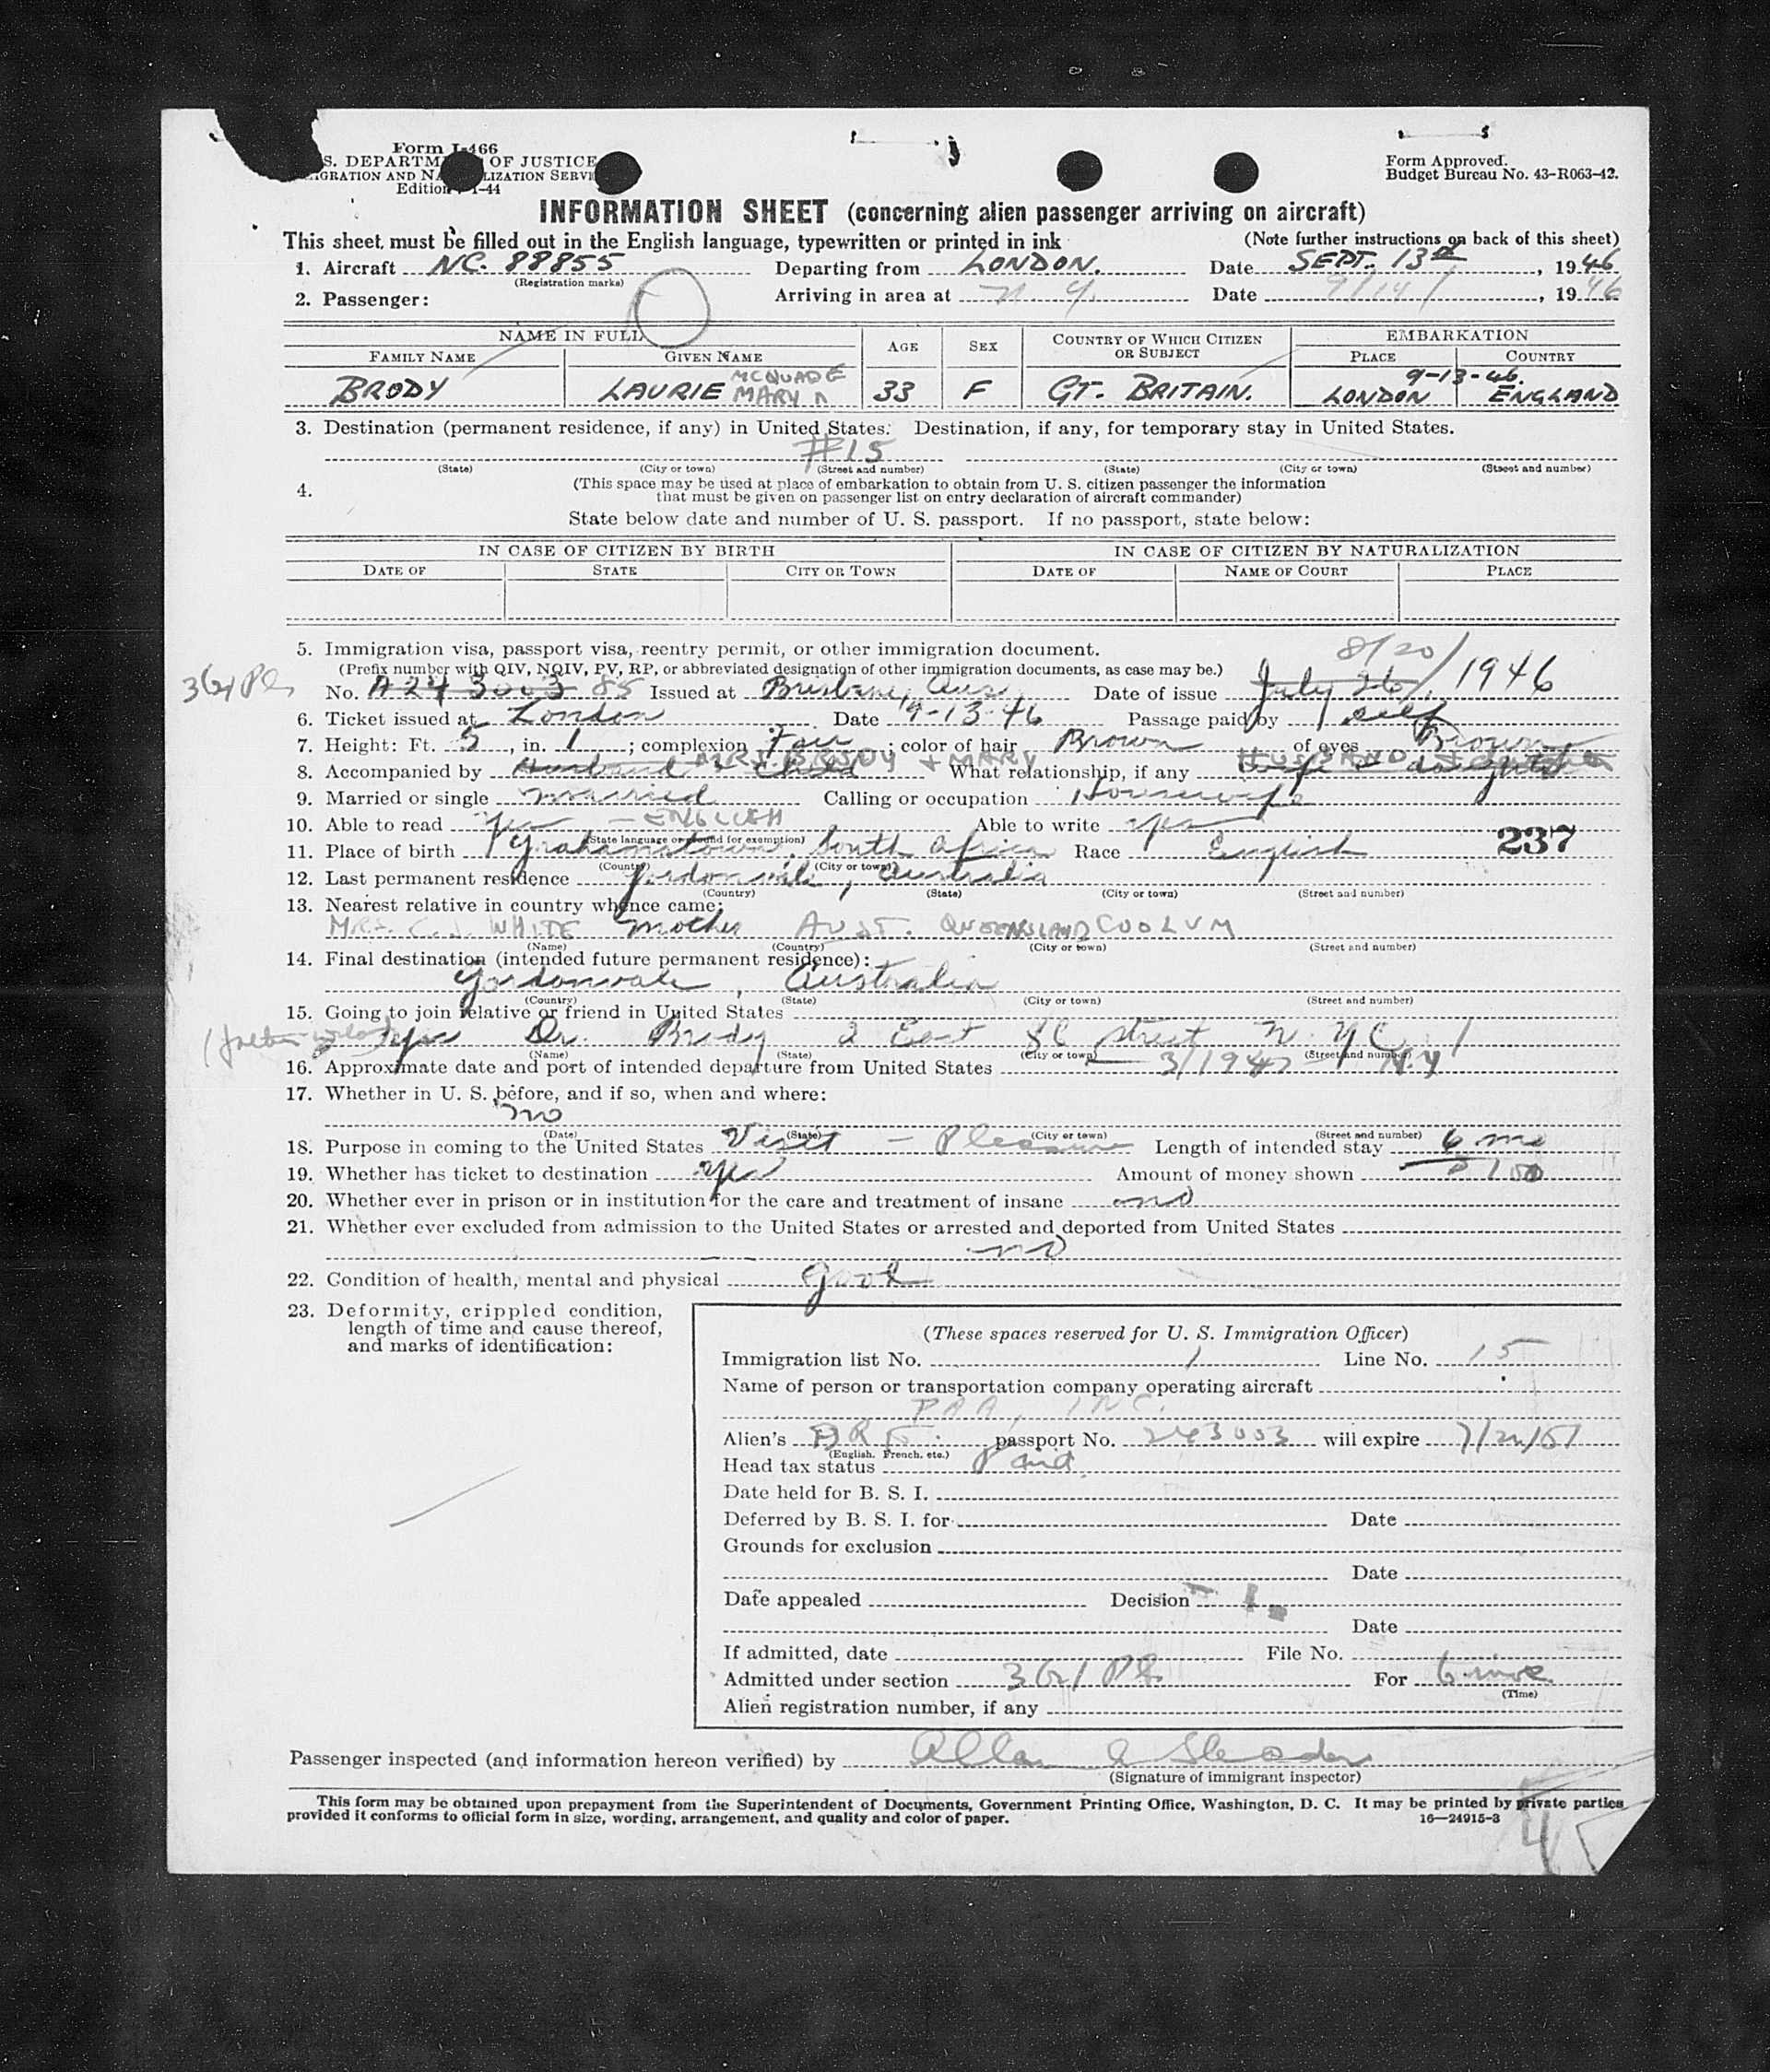 Form I-466
S. DEPARTMENT OF JUSTICE
IGRATION AND NATURALIZATION SERVI
Edition 1-44
Form Approved.
Budget Bureau No. 43-R063-42.
INFORMATION SHEET (concerning alien passenger arriving on aircraft)
This sheet must be filled out in the English language, typewritten or printed in ink (Note further instructions on back of this sheet)
1. Aircraft NC. 88855 Departing from LONDON. Date SEPT. 13th, 1946
(Registration marks)
2. Passenger: Arriving in area at N.Y. Date 9/14/, 1946
NAME IN FULL AGE SEX COUNTRY OF WHICH CITIZEN OR SUBJECT EMBARKATION
FAMILY NAME GIVEN NAME PLACE COUNTRY
MCQUADE 9-13-46.
BRODY LAURIE MARY 33 F GT. BRITAIN. LONDON ENGLAND
3. Destination (permanent residence, if any) in United States: Destination, if any, for temporary stay in United States.
#15
(State) (City or town) (Street and number) (State) (City or town) (Street and number)
4. (This space may be used at place of embarkation to obtain from U. S. citizen passenger the information
that must be given on passenger list on entry declaration of aircraft commander)
State below date and number of U. S. passport. If no passport, state below:
IN CASE OF CITIZEN BY BIRTH IN CASE OF CITIZEN BY NATURALIZATION
DATE OF STATE CITY OR TOWN DATE OF NAME OF COURT PLACE
5. Immigration visa, passport visa, reentry permit, or other immigration document.
8/20/
(Prefix number with QIV, NQIV, PV, RP, or abbreviated designation of other immigration documents, as case may be.)
No. A243003 85 Issued at Brisbane, Aus. Date of issue July 26/, 1946
6. Ticket issued at London Date 9-13-46 Passage paid by self
7. Height: Ft. 5, in. 1; complexion Fair; color of hair Brown of eyes Brown
MR. BRODY + MARY HUSBAND
8. Accompanied by Husband & Child What relationship, if any wife & daughter
9. Married or single married Calling or occupation Housewife
10. Able to read yes - ENGLISH Able to write yes
(State language or ground for exemption)
237
11. Place of birth Grahamstown, South Africa Race English
(Country) (City or town)
12. Last permanent residence Gordonvale, Australia
(Country) (State) (City or town) (Street and number)
13. Nearest relative in country whence came:
MRS. C.J. WHITE mother AUST. QUEENSLAND COOLUM
(Name) (Country) (City or town) (Street and number)
14. Final destination (intended future permanent residence):
Gordonvale, Australia
(Country) (State) (City or town) (Street and number)
15. Going to join relative or friend in United States
yes Dr. Brody 2 East street N.Y.C.
(Name) (State) (City or town) (Street and number)
16. Approximate date and port of intended departure from United States 3/1947 - N.Y
17. Whether in U. S. before, and if so, when and where:
no
(Date) (State) (City or town) (Street and number)
18. Purpose in coming to the United States Visit - Pleasure Length of intended stay 6 mo
19. Whether has ticket to destination yes Amount of money shown 100
20. Whether ever in prison or in institution for the care and treatment of insane no
21. Whether ever excluded from admission to the United States or arrested and deported from United States
no
22. Condition of health, mental and physical good
23. Deformity, crippled condition,
length of time and cause thereof,
and marks of identification:
(These spaces reserved for U. S. Immigration Officer)
Immigration list No. 1 Line No. 15
Name of person or transportation company operating aircraft
PAA, INC.
Alien's passport No. 243003 will expire
(English, French, etc.)
Head tax status Paid
Date held for B. S. I.
Deferred by B. S. I. for Date
Grounds for exclusion
Date
Date appealed Decision
Date
If admitted, date File No.
Admitted under section 3(2) Pl. For 6 mos
(Time)
Alien registration number, if any
Passenger inspected (and information hereon verified) by
(Signature of immigrant inspector)
This form may be obtained upon prepayment from the Superintendent of Documents, Government Printing Office, Washington, D. C. It may be printed by private parties
provided it conforms to official form in size, wording, arrangement, and quality and color of paper. 16—24915-3